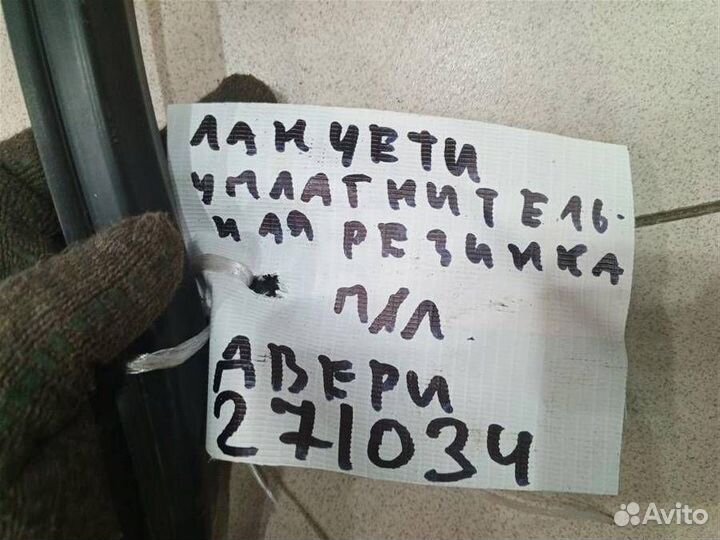 ЛАНЧЕТИ
УПЛАТНИТЕЛЬ-
НАЯ РЕЗИНКА
П/Л
ДВЕРИ
271034
Avito